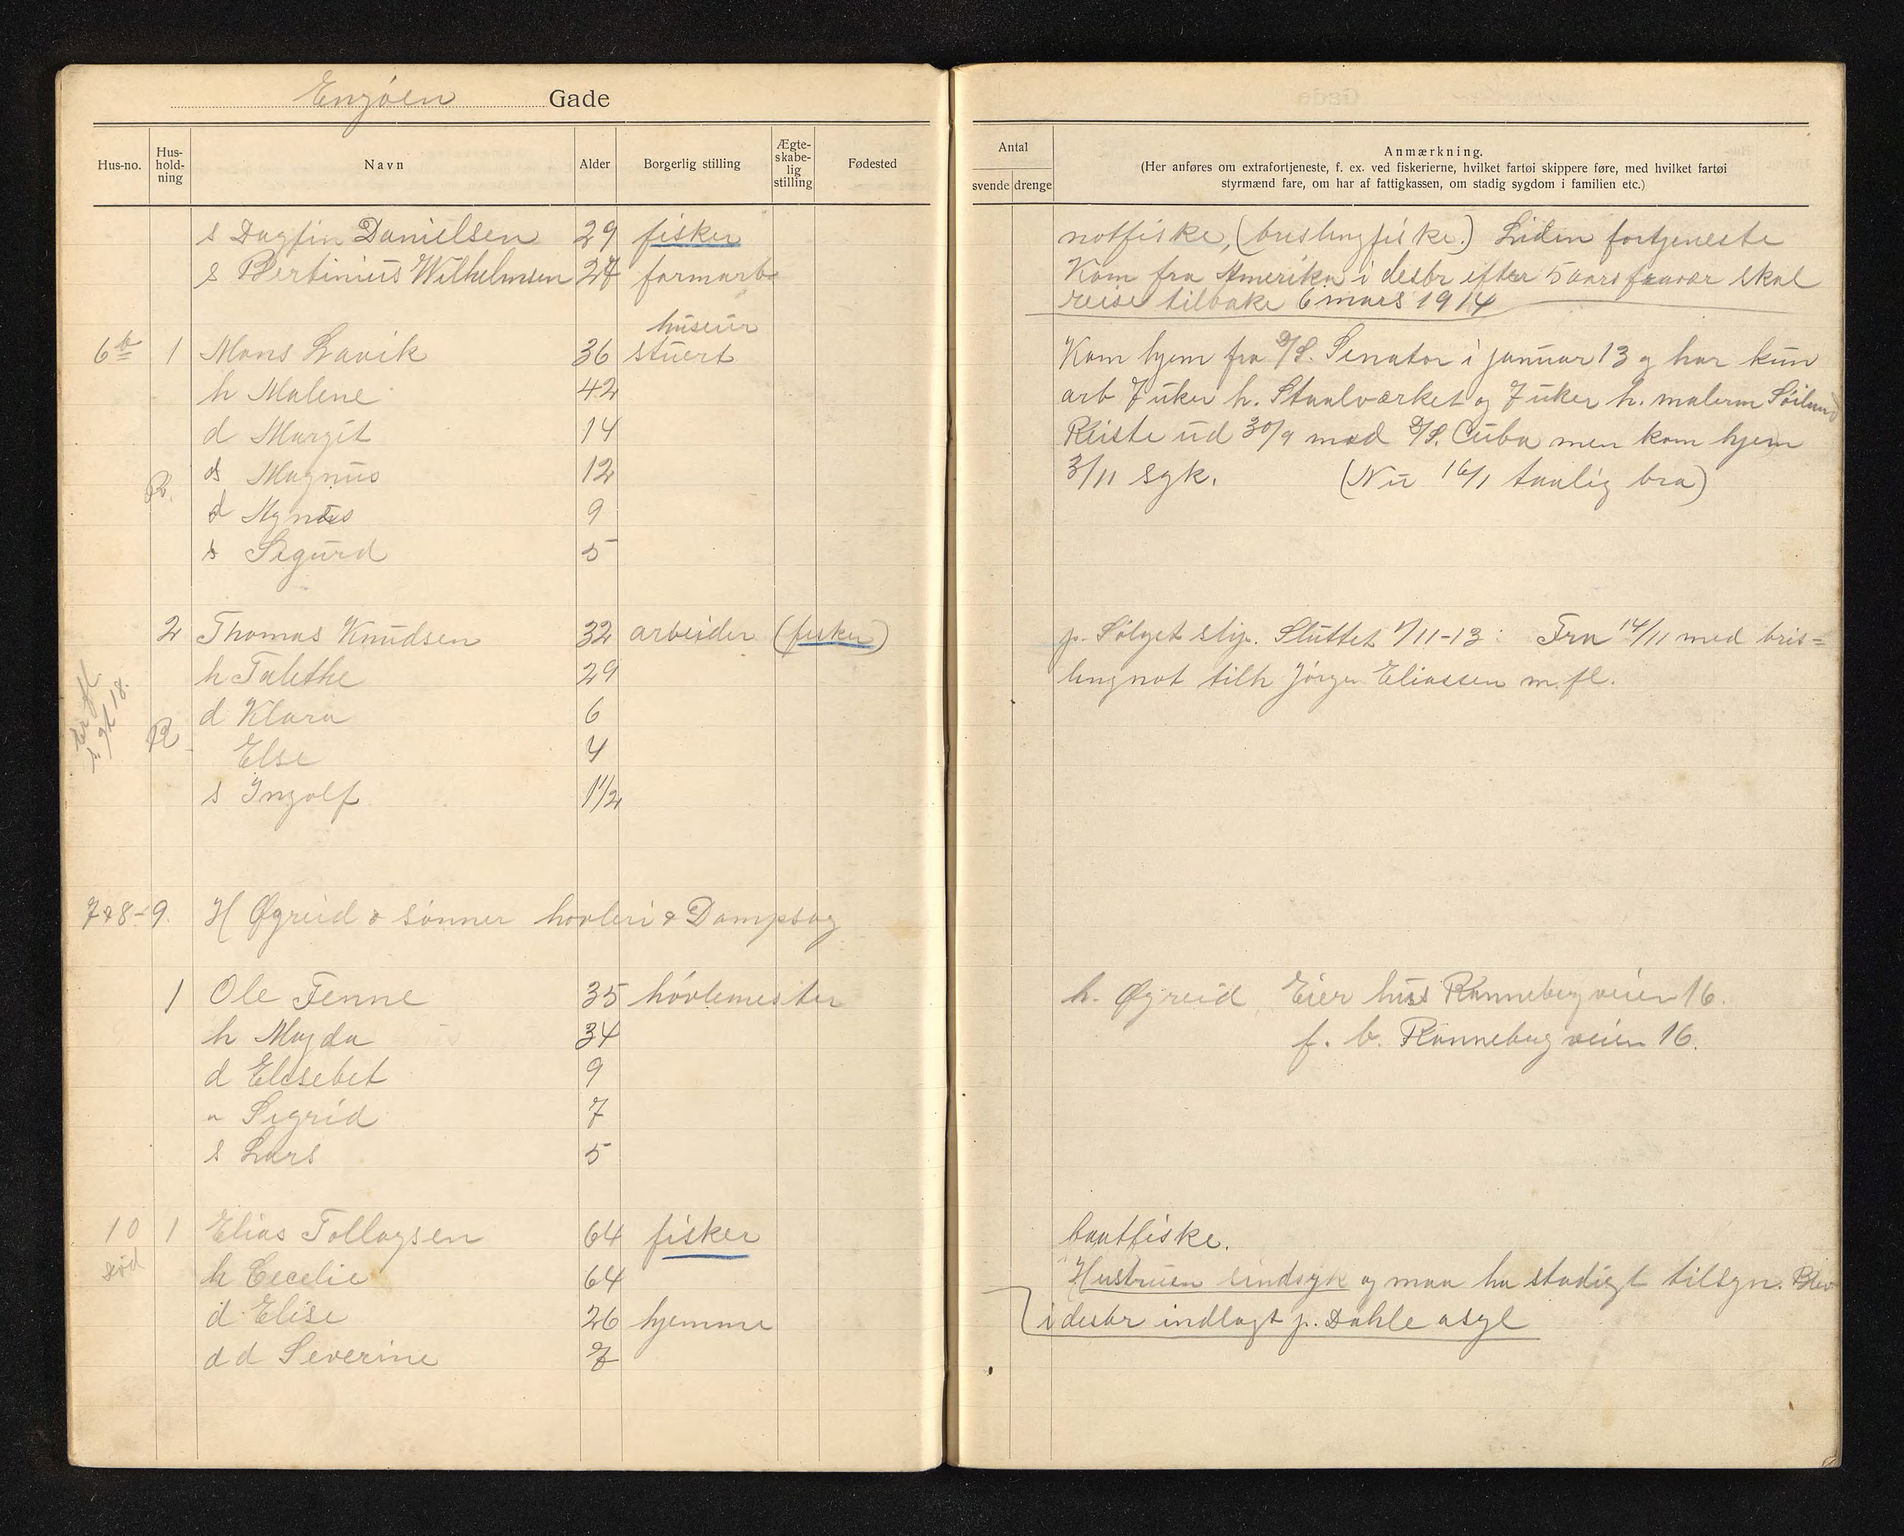 Engöen Gade
Hus-no. Hus-hold-ning Navn Alder Borgerlig stilling Ægte-skabe-lig stilling Fødested
s Dagfin Danielsen 29 fisker
s Bertinius Wilhelmsen 27 farmarb
huseier
6b 1 Mons Lavik 36 stuert
h Malene 42
d Margit 14
s Magnus 12
R.
d Agnes 9
s Sigurd 5
2 Thomas Knudsen 32 arbeider (fisker)
h Talethe 29
d Klara 6
R
Else 4
s Ingolf 1 1/2
7 & 8-9. H Øgreid & sønner hovleri & Dampsag
1 Ole Tenne 35 hövlemester
h Magda 34
d Elisebet 9
" Sigrid 7
s Lars 5
10 1 Elias Tollagsen 64 fisker
h Cecelie 64
d Elise 26 hjemme
dd Severine 7
Antal
svende drenge
Anmærkning.
(Her anføres om extrafortjeneste, f. ex. ved fiskerierne, hvilket fartøi skippere føre, med hvilket fartøi
styrmænd fare, om har af fattigkassen, om stadig sygdom i familien etc.)
notfiske, (brislingfiske.) Liden fortjeneste
Kom fra Amerika i desbr efter 5 aars fravær skal
reise tilbake 6 mars 1914
Kom hjem fra D/S. Senator i januar 13 g har kun
arb 7 uker h. Staalværket og 7 uker h. malerm
Reiste ud 30/9 med D/S. Cuba men kom hjem
3/11 syk. (Nu 16/1 taalig bra)
p. Sølyst slip. Sluttet 1/11-13: Fra 14/11 med bris=
lingnot tilh Jørgen Eliassen m.fl.
h. Øgreid, Eier hus Rannebergveien 16.
f. b. Rannebergveien 16.
baatfiske.
Hustruen sindsyk og maa ha stadigt tilsyn. Blev
i desbr indlagt p. Dahle asyl